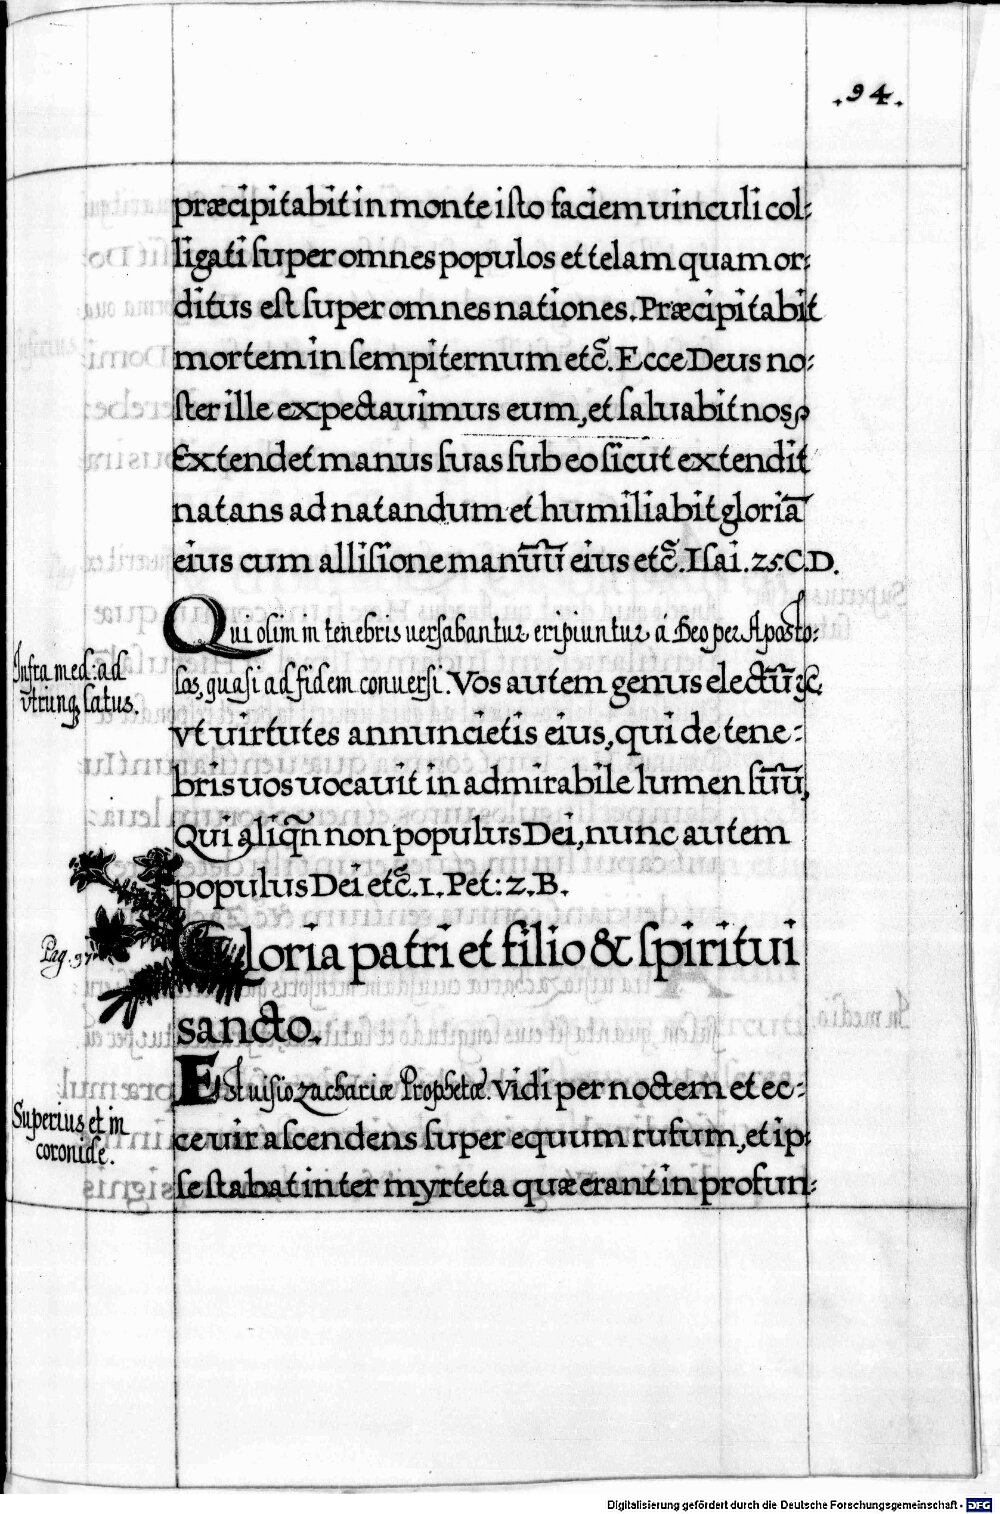 .94.
præcipitabit in monte isto faciem uinculi col:
ligati super omnes populos et telam quam or:
ditus est super omnes nationes. Præcipitabit
mortem in sempiternum etc̃. Ecce Deus no:
ster ille expectauimus eum, et saluabit nos,
Extendet manus suas sub eo sicut extendit
natans ad natandum et humiliabit gloriã
eius cum allisione manũũ eius etc̃. Isai. 25. C. D.
Qui olim in tenebris uersabantur eripiuntur á Deo per Aposto:
Infra med: ad
utrunq; latus.
los, quasi ad fidem conuersi. Vos autem genus electũ &c.
vt uirtutes annuncietis eius, qui de tene:
bris uos uocauit in admirabile lumen sũũ,
Qui aliqñ non populus Dei, nunc autem
populus Dei etc̃. 1. Pet: 2. B.
Pag. 97
Gloria patri et filio & spiritui
sancto.
Est uisio zachariæ Prophetæ. Vidi per noctem et ec:
Superius et in
coronide.
ce uir ascendens super equum rufum, et ip:
se stabat inter myrteta quæ erant in profun:
Digitalisierung gefördert durch die Deutsche Forschungsgemeinschaft - DFG